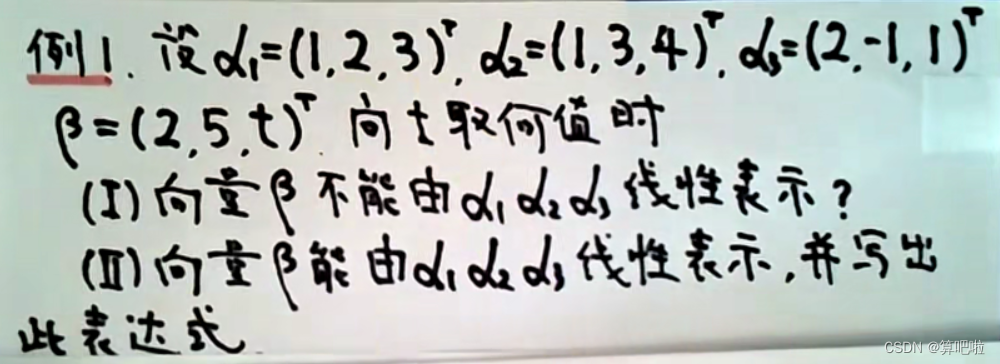 例1. 设α₁=(1,2,3)ᵀ, α₂=(1,3,4)ᵀ, α₃=(2,-1,1)ᵀ
β=(2,5,t)ᵀ 问t取何值时
(Ⅰ)向量β不能由α₁α₂α₃线性表示?
(Ⅱ)向量β能由α₁α₂α₃线性表示,并写出
此表达式
CSDN @算吧啦